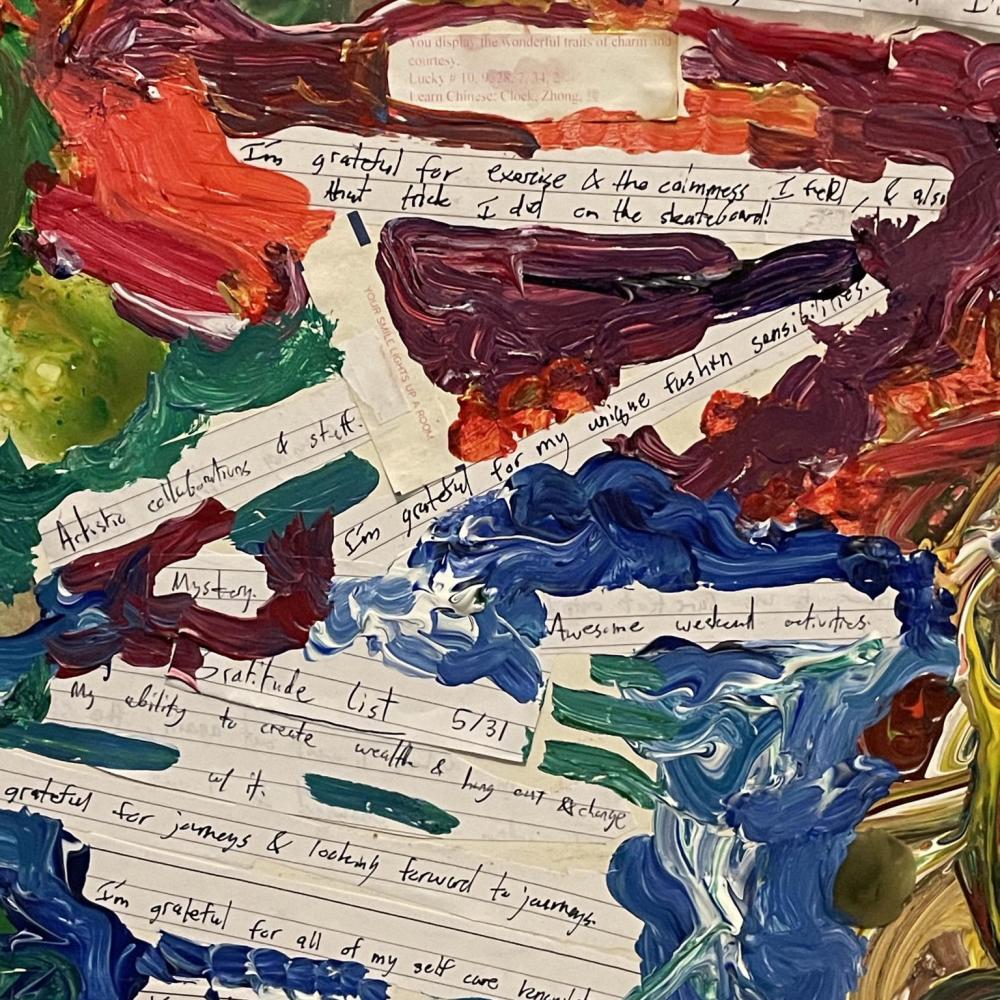 You display the wonderful traits of charm and
courtesy.
Lucky # 10, 9, 28, 7, 34, 2
Learn Chinese: Clock, Zhong,
I'm grateful for exercise & the coimness I feel, & also
that trick I did on the skateboard!
YOUR SMILE LIGHTS UP A ROOM
I'm grateful for my unique fashion sensibilities.
Artistic collaborations & stuff.
Mystery.
Awesome weekend activities.
Gratitude list 5/31
My ability to create wealth & hang out & change
w/ it.
grateful for journeys & looking forward to journeys.
I'm grateful for all of my self care